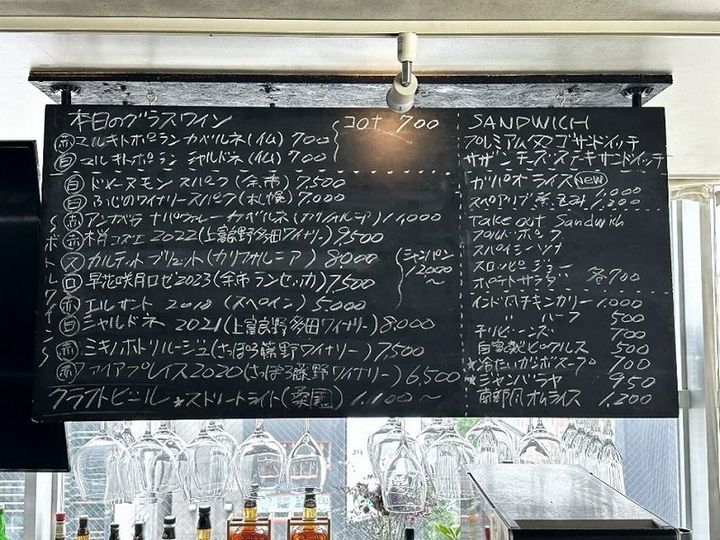 本日のグラスワイン
赤 マルキトポラン カベルネ(仏) 700
白 マルキトポラン シャルドネ(仏) 700
コロナ 700
ボトルワイン
白 ドメーヌモン スパーク(余市) 7,500
白 ふじのワイナリースパーク(札幌) 7,000
赤 ナパヴァレーカベルネ(カリフォルニア) 11,000
赤 2022(上富良野多田ワイナリー) 9,500
ス カルテット ブリュット(カリフォルニア) 8,000
ロ 早花咲月ロゼ2023(余市ランセッカ) 7,500
赤 エルサント 2018 (スペイン) 5,000
白 シャルドネ 2021(上富良野多田ワイナリー) 8,000
赤 ミキノホトリルージュ(さっぽろ藤野ワイナリー) 7,500
赤 ファイアプレイス2020(さっぽろ藤野ワイナリー) 6,500
シャンパン
12,000
〜
クラフトビール *ストリートライト( ) 1,100〜
SANDWICH
プレミアムタコサンドイッチ
サザンチーズステーキサンドイッチ
ガパオライス new 1,000
スペアリブ煮込み 1,200
Take out Sandwich
プルドポーク
スパイシーツナ
スロッピージョー
ポテトサラダ 各700
インド風チキンカリー 1,000
〃 ハーフ 500
チリビーンズ 700
自家製ピクルス 500
*冷たいガンボスープ 700
*ジャンバラヤ 950
南部風オムライス 1,200